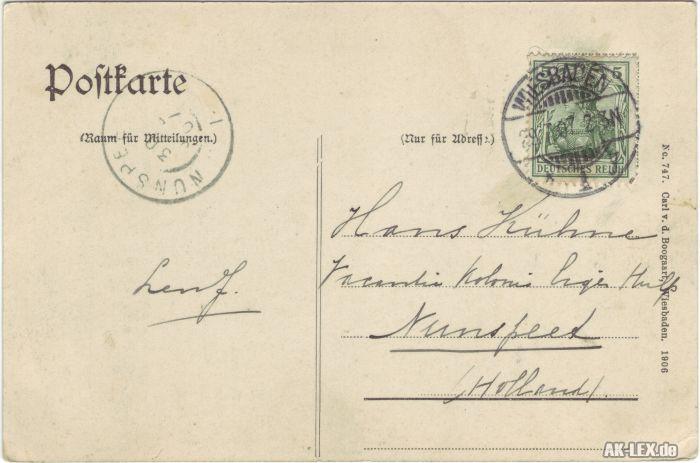 Postkarte
(Raum für Mitteilungen.)
(Nur für Adresse.)
NUNSPE
WIESBADEN
5 5
DEUTSCHES REICH
Hans Kühne
Vacantie Kolonie Eigen Hulp
Nunspeet
(Holland).
No. 747. Carl v. d. Boogaart, Wiesbaden. 1906
AK-LEX.de